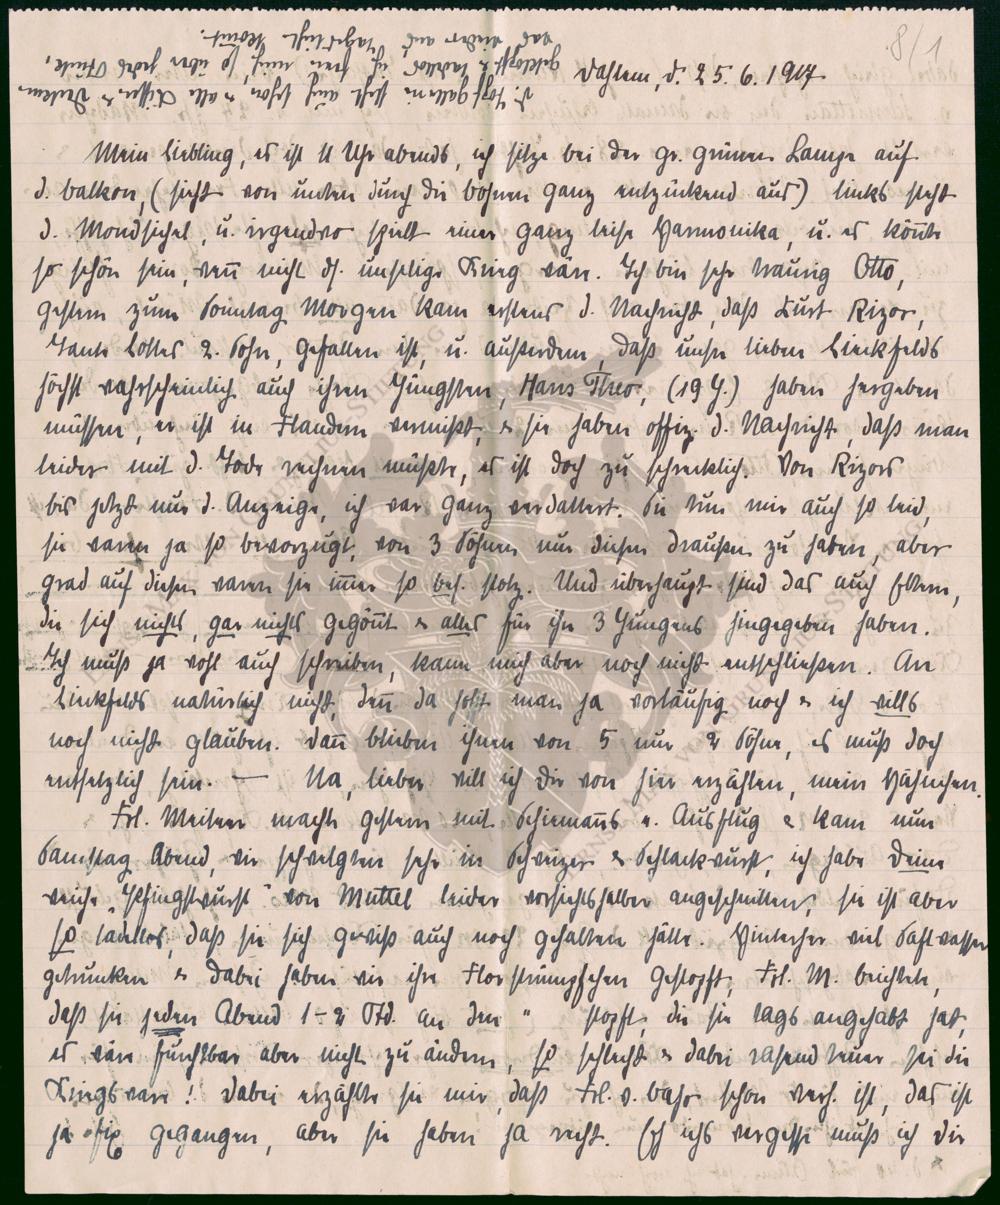 8/1
Dahlem, d. 25.6.1917
Mein Liebling, es ist 11 Uhr abends, ich sitze bei der gr. grünen Lampe auf
d. Balkon, (sieht von unten durch die Bohnen ganz entzückend aus) links steht
d. Mondsichel, u. irgendwo spielt einer ganz leise Harmonika, u. es könnte
so schön sein, wenn nicht ds. unselige Krieg wäre. Ich bin sehr traurig Otto,
gestern zum Sonntag Morgen kam erstens d. Nachricht, daß Kurt Rizor,
Tante Lottes 2. Sohn, gefallen ist, u. außerdem daß unsre lieben Linckfelds
höchst wahrscheinlich auch ihren Jüngsten, Hans Theo, (19 J.) haben hergeben
müssen, er ist in Flandern vermißt, & sie haben offiz. d. Nachricht, daß man
leider mit d. Tode rechnen müßte, es ist doch zu schrecklich. Von Rizors
bis jetzt nur d. Anzeige, ich war ganz verdattert. Sie tun mir auch so leid,
sie waren ja so bevorzugt, von 3 Söhnen nur diesen draußen zu haben, aber
grad auf diesen waren sie immer so bes. stolz. Und überhaupt sind das auch Eltern,
die sich nichts, gar nichts gegönnt & alles für ihre 3 Jungens hingegeben haben.
Ich muß ja wohl auch schreiben, kann mich aber noch nicht entschließen. An
Linckfelds natürlich nicht, denn da hofft man ja vorläufig noch & ich wills
noch nicht glauben. Dann blieben ihnen von 5 nur 2 Söhne, es muß doch
entsetzlich sein. — Na, lieber will ich Dir von hier erzählen, mein Hähnchen.
Frl. Meiten machte gestern mit Schiemanns e. Ausflug & kam nun
Samstag Abend, wir schwelgten sehr in Schweizer & Schlackwurst, ich habe Deine
weiche "Pfingstwurst" von Muttel leider vorsichtshalber angeschnitten, sie ist aber
so tadellos, daß sie sich gewiß auch noch gehalten hätte. Hinterher viel Saftwasser
getrunken & dabei haben wir ihre Florstrümpfchen gestopft, Frl. M. beichtete,
daß sie jeden Abend 1-2 Std. an den " stopft, die sie tags angehabt hat,
es wäre furchtbar aber nicht zu ändern, so schlecht & dabei rasend teuer sei die
Kriegsware! Dabei erzählte sie mir, daß Frl. v. Bahr schon verh. ist, das ist
ja fix gegangen, aber sie haben ja recht. Eh ichs vergesse muß ich Dir
d. Topfgallerie steht auch schon, & alle Kissen & Decken
geklopft & tadellos, ich freu mich so über jedes Stück,
das wieder ans Tageslicht kommt.